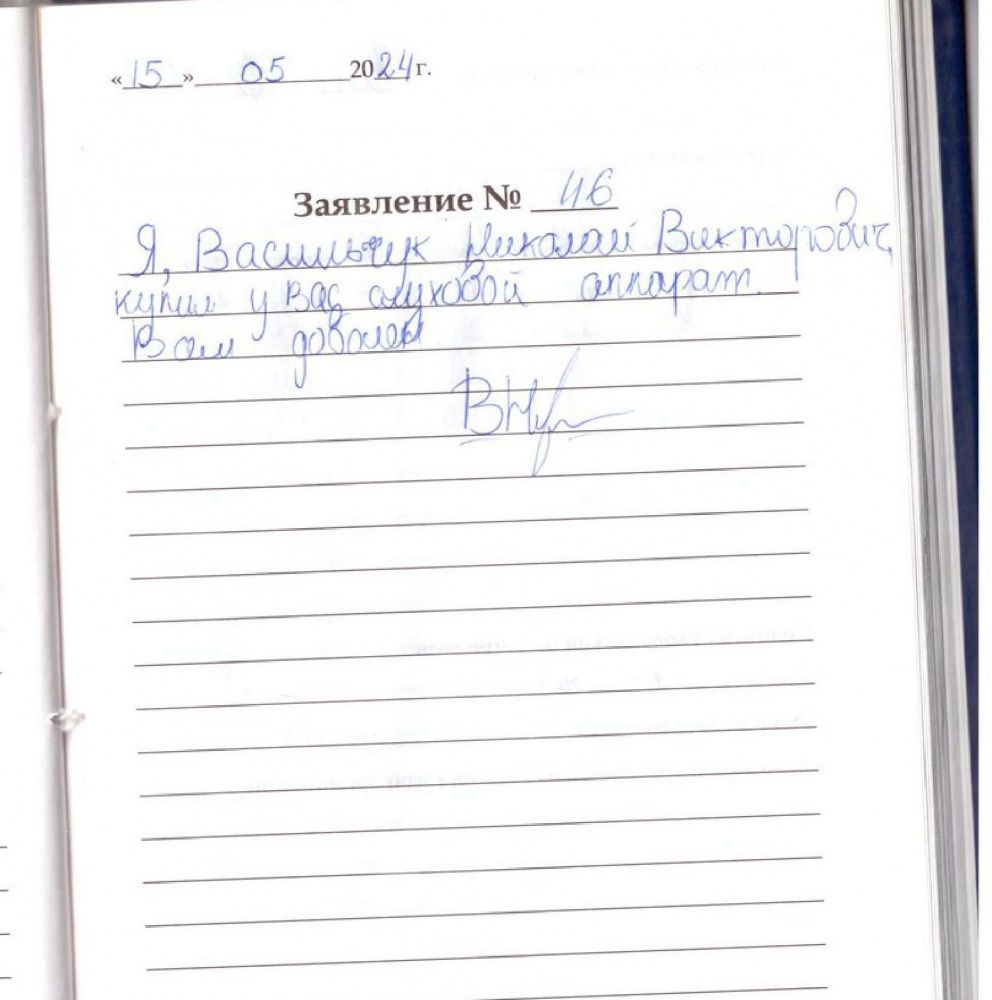 «15» 05 2024 г.
Заявление № 46
Я, Васильчук Николай Викторович,
купил у Вас слуховой аппарат.
Вам доволен